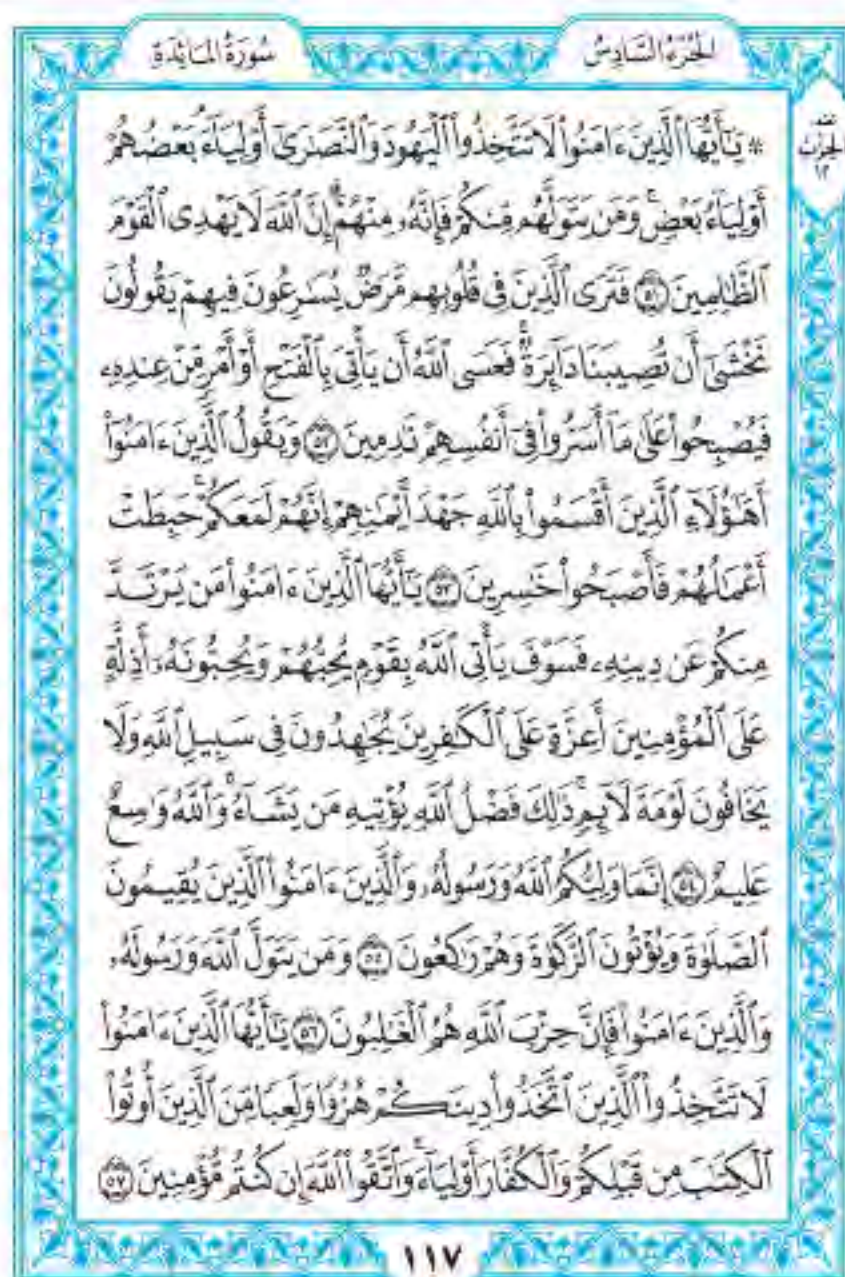 الجُزْءُ السَّادِسُ
سُورَةُ المَائِدَةِ
نصف
الحزب
١٢
۞ يَٰٓأَيُّهَا ٱلَّذِينَ ءَامَنُوا۟ لَا تَتَّخِذُوا۟ ٱلْيَهُودَ وَٱلنَّصَٰرَىٰٓ أَوْلِيَآءَ ۘ بَعْضُهُمْ
أَوْلِيَآءُ بَعْضٍ ۚ وَمَن يَتَوَلَّهُم مِّنكُمْ فَإِنَّهُۥ مِنْهُمْ ۗ إِنَّ ٱللَّهَ لَا يَهْدِى ٱلْقَوْمَ
ٱلظَّٰلِمِينَ ٥١ فَتَرَى ٱلَّذِينَ فِى قُلُوبِهِم مَّرَضٌ يُسَٰرِعُونَ فِيهِمْ يَقُولُونَ
نَخْشَىٰٓ أَن تُصِيبَنَا دَآئِرَةٌ ۚ فَعَسَى ٱللَّهُ أَن يَأْتِىَ بِٱلْفَتْحِ أَوْ أَمْرٍ مِّنْ عِندِهِۦ
فَيُصْبِحُوا۟ عَلَىٰ مَآ أَسَرُّوا۟ فِىٓ أَنفُسِهِمْ نَٰدِمِينَ ٥٢ وَيَقُولُ ٱلَّذِينَ ءَامَنُوٓا۟
أَهَٰٓؤُلَآءِ ٱلَّذِينَ أَقْسَمُوا۟ بِٱللَّهِ جَهْدَ أَيْمَٰنِهِمْ ۙ إِنَّهُمْ لَمَعَكُمْ ۚ حَبِطَتْ
أَعْمَٰلُهُمْ فَأَصْبَحُوا۟ خَٰسِرِينَ ٥٣ يَٰٓأَيُّهَا ٱلَّذِينَ ءَامَنُوا۟ مَن يَرْتَدَّ
مِنكُمْ عَن دِينِهِۦ فَسَوْفَ يَأْتِى ٱللَّهُ بِقَوْمٍ يُحِبُّهُمْ وَيُحِبُّونَهُۥٓ أَذِلَّةٍ
عَلَى ٱلْمُؤْمِنِينَ أَعِزَّةٍ عَلَى ٱلْكَٰفِرِينَ يُجَٰهِدُونَ فِى سَبِيلِ ٱللَّهِ وَلَا
يَخَافُونَ لَوْمَةَ لَآئِمٍ ۚ ذَٰلِكَ فَضْلُ ٱللَّهِ يُؤْتِيهِ مَن يَشَآءُ ۚ وَٱللَّهُ وَٰسِعٌ
عَلِيمٌ ٥٤ إِنَّمَا وَلِيُّكُمُ ٱللَّهُ وَرَسُولُهُۥ وَٱلَّذِينَ ءَامَنُوا۟ ٱلَّذِينَ يُقِيمُونَ
ٱلصَّلَوٰةَ وَيُؤْتُونَ ٱلزَّكَوٰةَ وَهُمْ رَٰكِعُونَ ٥٥ وَمَن يَتَوَلَّ ٱللَّهَ وَرَسُولَهُۥ
وَٱلَّذِينَ ءَامَنُوا۟ فَإِنَّ حِزْبَ ٱللَّهِ هُمُ ٱلْغَٰلِبُونَ ٥٦ يَٰٓأَيُّهَا ٱلَّذِينَ ءَامَنُوا۟
لَا تَتَّخِذُوا۟ ٱلَّذِينَ ٱتَّخَذُوا۟ دِينَكُمْ هُزُوًا وَلَعِبًا مِّنَ ٱلَّذِينَ أُوتُوا۟
ٱلْكِتَٰبَ مِن قَبْلِكُمْ وَٱلْكُفَّارَ أَوْلِيَآءَ ۚ وَٱتَّقُوا۟ ٱللَّهَ إِن كُنتُم مُّؤْمِنِينَ ٥٧
١١٧